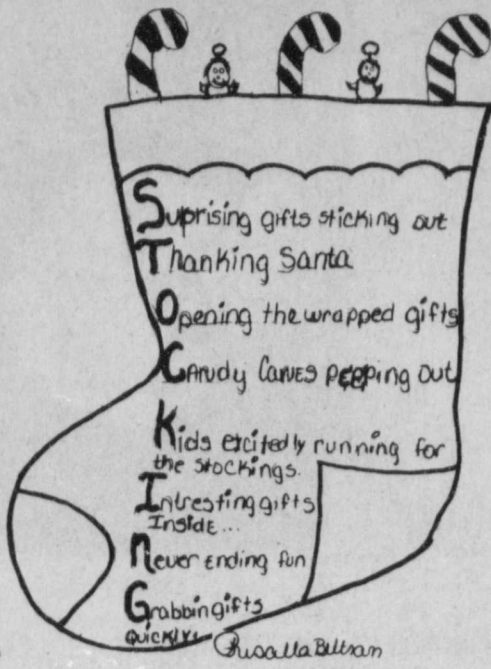 Suprising gifts sticking out
Thanking Santa
Opening the wrapped gifts
Candy Canes peeping out
Kids excitedly running for
the stockings.
Intresting gifts
Inside...
Never ending fun
Grabbin gifts
quickly!
Priscilla Beltran